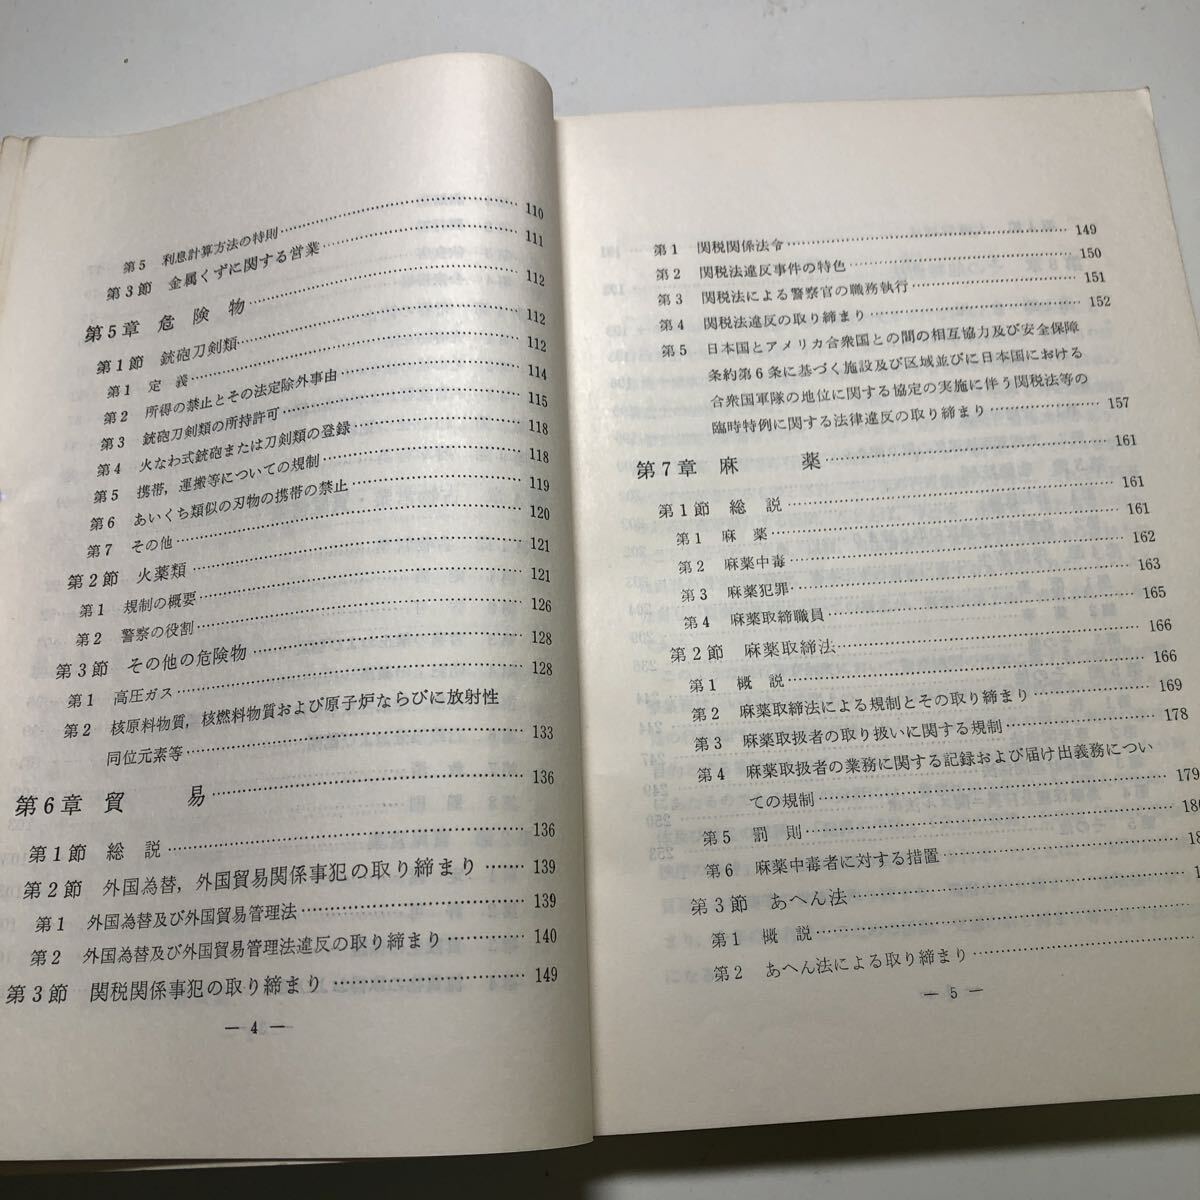 第5 利息計算方法の特則…… 110
第3節 金属くずに関する営業…… 111
第5章 危険物…… 112
第1節 銃砲刀剣類…… 112
第1 定義…… 112
第2 所得の禁止とその法定除外事由…… 114
第3 銃砲刀剣類の所持許可…… 115
第4 火なわ式銃砲または刀剣類の登録…… 118
第5 携帯,運搬等についての規制…… 118
第6 あいくち類似の刃物の携帯の禁止…… 119
第7 その他…… 120
第2節 火薬類…… 121
第1 規制の概要…… 121
第2 警察の役割…… 126
第3節 その他の危険物…… 128
第1 高圧ガス…… 128
第2 核原料物質,核燃料物質および原子炉ならびに放射性
同位元素等…… 133
第6章 貿易…… 136
第1節 総説…… 136
第2節 外国為替,外国貿易関係事犯の取り締まり…… 139
第1 外国為替及び外国貿易管理法…… 139
第2 外国為替及び外国貿易管理法違反の取り締まり…… 140
第3節 関税関係事犯の取り締まり…… 149
— 4 —
第1 関税関係法令…… 149
第2 関税法違反事件の特色…… 150
第3 関税法による警察官の職務執行…… 151
第4 関税法違反の取り締まり…… 152
第5 日本国とアメリカ合衆国との間の相互協力及び安全保障
条約第6条に基づく施設及び区域並びに日本国における
合衆国軍隊の地位に関する協定の実施に伴う関税法等の
臨時特例に関する法律違反の取り締まり…… 157
第7章 麻薬…… 161
第1節 総説…… 161
第1 麻薬…… 161
第2 麻薬中毒…… 162
第3 麻薬犯罪…… 163
第4 麻薬取締職員…… 165
第2節 麻薬取締法…… 166
第1 概説…… 166
第2 麻薬取締法による規制とその取り締まり…… 169
第3 麻薬取扱者の取り扱いに関する規制…… 178
第4 麻薬取扱者の業務に関する記録および届け出義務につい
ての規制…… 179
第5 罰則…… 180
第6 麻薬中毒者に対する措置……
第3節 あへん法……
第1 概説……
第2 あへん法による取り締まり……
— 5 —